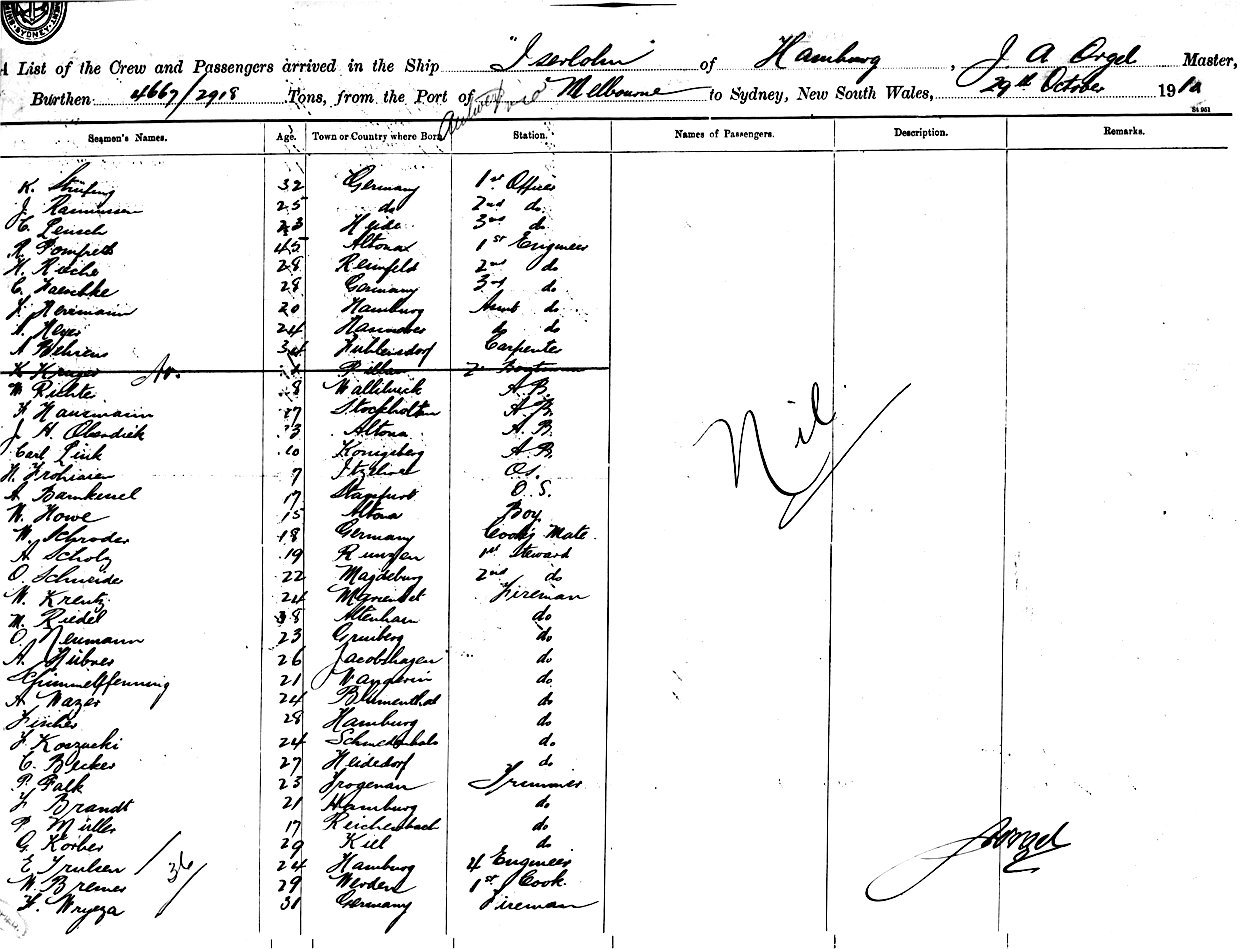 SYDNEY
A List of the Crew and Passengers arrived in the Ship "Iserlohn" of Hamburg, J A Orgel Master,
Burthen 4667/2918 Tons, from the Port of Antwerp via Melbourne to Sydney, New South Wales, 29th October 1910
St 951
Seamen's Names. Age. Town or Country where Born Station. Names of Passengers. Description. Remarks.
K. 32 Germany 1st Officer
J. Rasmussen 25 do 2nd do
C. Leusch 23 Heide 3rd do
R. Pomfrett 45 Altona 1st Engineer
H. Reiche 28 Reinfeld 2nd do
C. Haeschke 28 Germany 3rd do
J. Herrmann 20 Hamburg Asst do
A. Meyer 24 Hannover do do
A Behrens 34 Carpenter
K Kruger No.
W Richte 8 A B.
H Haurmann 27 Stockholm A. B.
J. H. Oberdiek 23 Altona A. B.
Carl Link 20 Konigsberg A. B.
H. 7 Itzehoe Os.
A Bamkessel 17 Stassfurt O. S.
W. Howe 15 Altona Boy
W. Schroder 18 Germany Cook's Mate.
A Scholz 19 1st Steward
O. Schneider 22 Magdeburg 2nd do
W. Krentz 24 Fireman
M. Riedel 38 Altenham do
O. Neumann 23 Grunberg do
A. Hübner 26 Jacobshagen do
Schimmelpfenning 21 Wangerin do
A Wazer 24 Blumenthal do
Fischer 28 Hamburg do
J Koszucki 24 do
C. Becker 27 Heidedorf do
P. Falk 23 Frogenau Trimmer
F Brandt 21 Hamburg do
P Müller 17 Reichenbach do
G. Korber 29 Kiel do
E. Trulsen 24 Hamburg 4 Engineer
W. Bremer 29 Werden 1st Cook.
H. Wryeza 31 Germany Fireman
36
Nil
JAOrgel